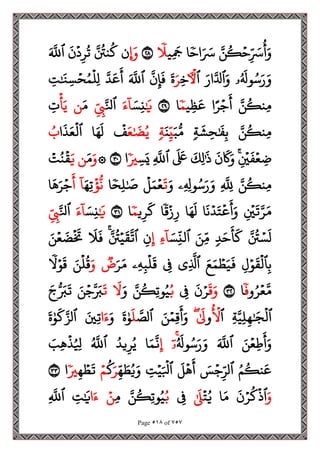 وَأُسَرِّحْكُنَّ سَرَاحًا جَمِيلًا ٢٨ وَإِن كُنتُنَّ تُرِدْنَ ٱللَّهَ
وَرَسُولَهُۥ وَٱلدَّارَ ٱلْأٓخِرَةَ فَإِنَّ ٱللَّهَ أَعَدَّ لِلْمُحْسِنَٰتِ
مِنكُنَّ أَجْرًا عَظِيمًا ٢٩ يَٰنِسَآءَ ٱلنَّبِيِّ مَن يَأْتِ
مِنكُنَّ بِفَٰحِشَةٍ مُّبَيِّنَةٍ يُضَٰعَفْ لَهَا ٱلْعَذَابُ
ضِعْفَيْنِ ۚ وَكَانَ ذَٰلِكَ عَلَى ٱللَّهِ يَسِيرًا ٣٠ ۞ وَمَن يَقْنُتْ
مِنكُنَّ لِلَّهِ وَرَسُولِهِۦ وَتَعْمَلْ صَٰلِحًا نُّؤْتِهَآ أَجْرَهَا
مَرَّتَيْنِ وَأَعْتَدْنَا لَهَا رِزْقًا كَرِيمًا ٣١ يَٰنِسَآءَ ٱلنَّبِيِّ
لَسْتُنَّ كَأَحَدٍ مِّنَ ٱلنِّسَآءِ إِنِ ٱتَّقَيْتُنَّ ۚ فَلَا تَخْضَعْنَ
بِٱلْقَوْلِ فَيَطْمَعَ ٱلَّذِي فِي قَلْبِهِۦ مَرَضٌ وَقُلْنَ قَوْلًا
مَّعْرُوفًا ٣٢ وَقَرْنَ فِي بُيُوتِكُنَّ وَلَا تَبَرَّجْنَ تَبَرُّجَ
ٱلْجَٰهِلِيَّةِ ٱلْأُولَىٰ ۖ وَأَقِمْنَ ٱلصَّلَوٰةَ وَءَاتِينَ ٱلزَّكَوٰةَ
وَأَطِعْنَ ٱللَّهَ وَرَسُولَهُۥٓ ۚ إِنَّمَا يُرِيدُ ٱللَّهُ لِيُذْهِبَ
عَنكُمُ ٱلرِّجْسَ أَهْلَ ٱلْبَيْتِ وَيُطَهِّرَكُمْ تَطْهِيرًا ٣٣
وَٱذْكُرْنَ مَا يُتْلَىٰ فِي بُيُوتِكُنَّ مِنْ ءَايَٰتِ ٱللَّهِ
Page ٥١٨ of ٧٥٧